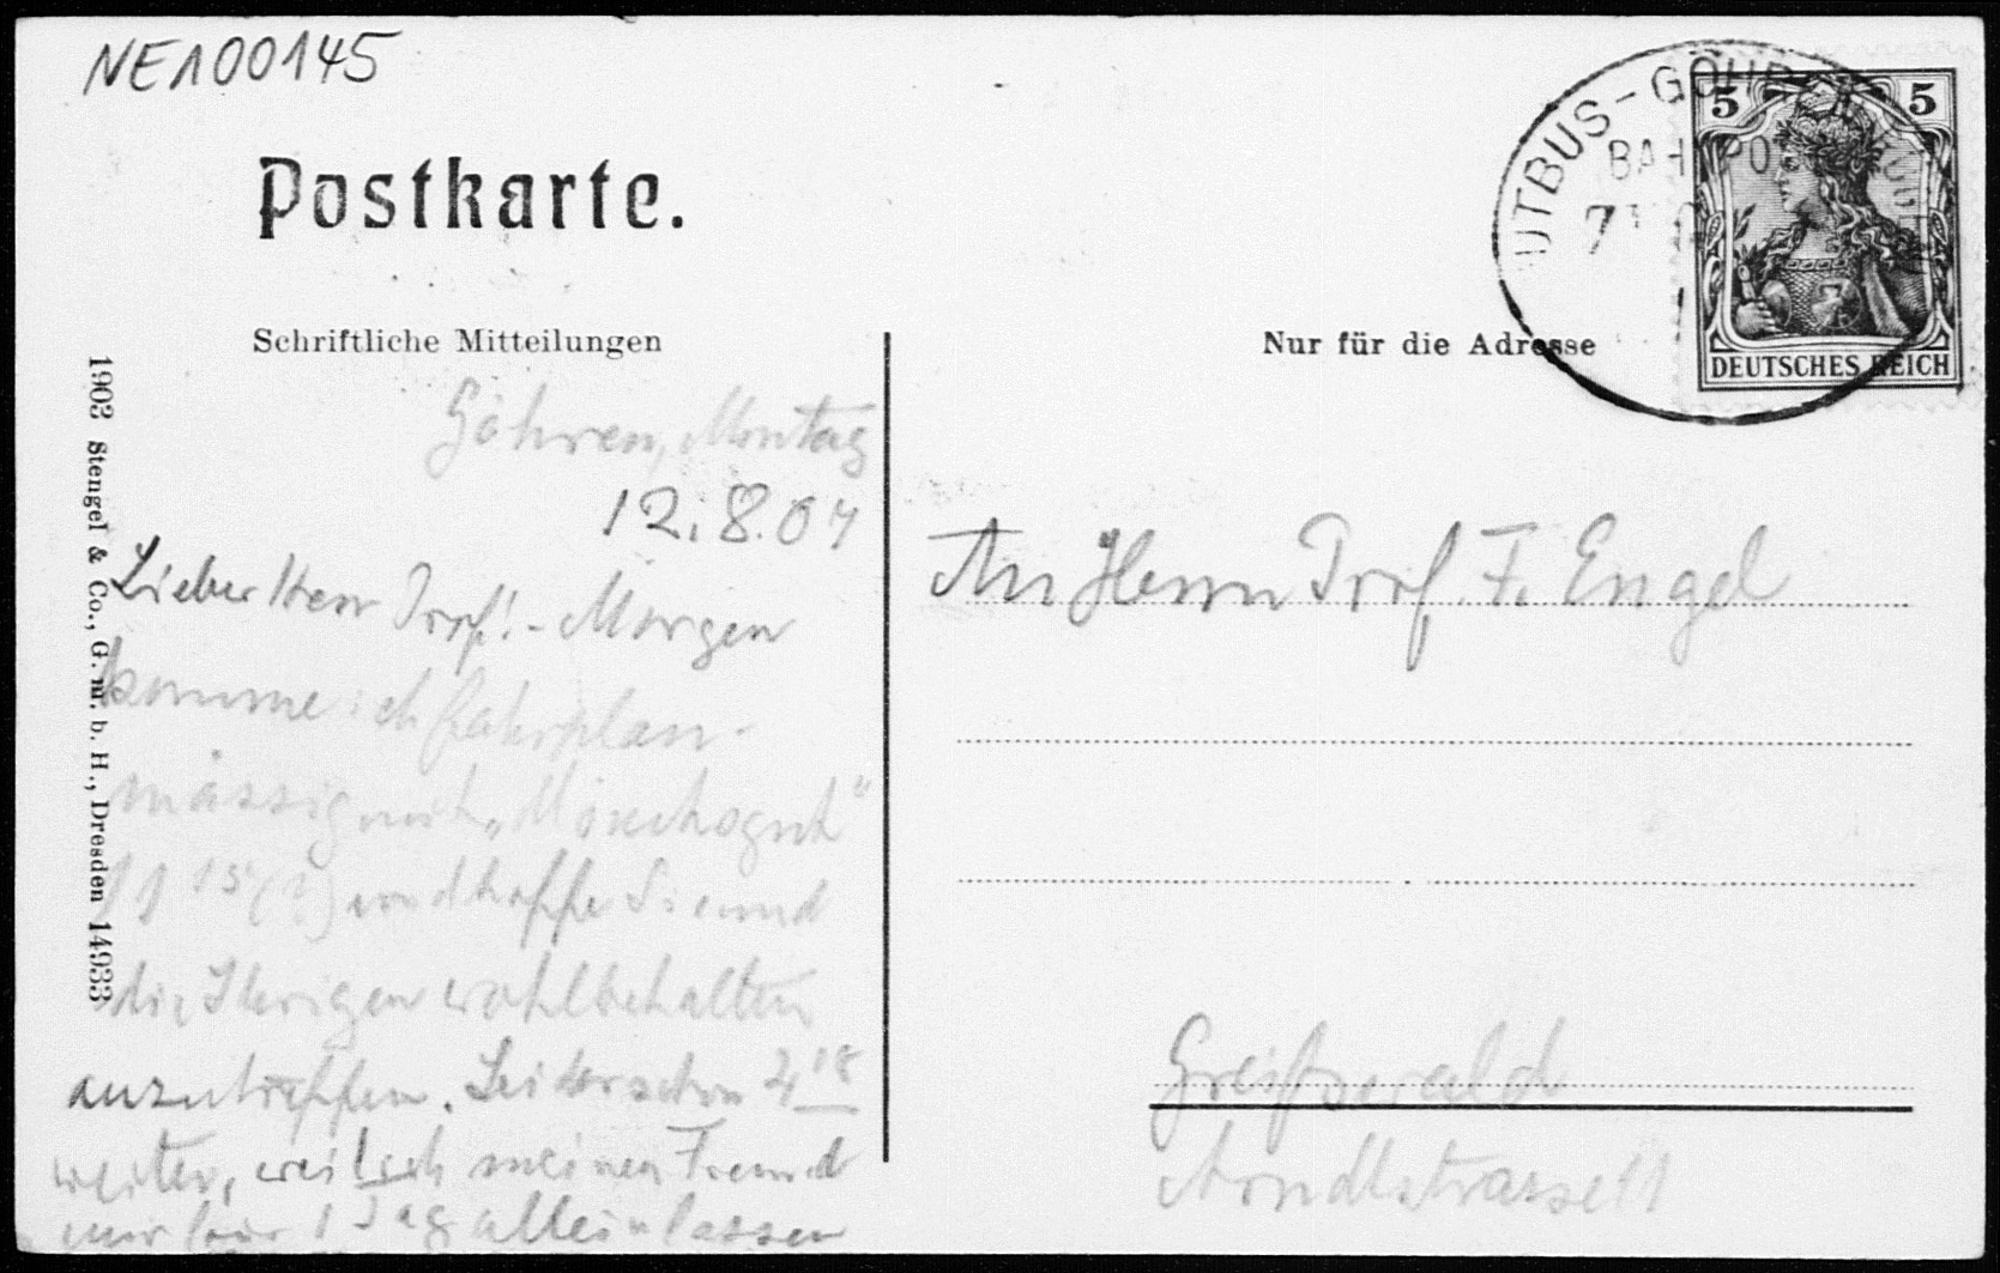 NE100145
Postkarte.
Schriftliche Mitteilungen
Nur für die Adresse
UTBUS - GÖHR
BAHNPO
5 5
DEUTSCHES REICH
1903 Stengel & Co., G. m. b. H., Dresden 14933
Göhren, Montag
12.8.07
Lieber Herr Prof! - Morgen
komme ich fahrplan-
mässig mit „Mönchgut"
11 15 (?) und hoffe Sie und
die Ihrigen wohlbehalten
anzutreffen. Leider schon 4 18
weiter, weil ich meinen Freund
nur 1 Tag allein lassen
An Herrn Prof. F. Engel
Greifswald
Arndtstrasse 11